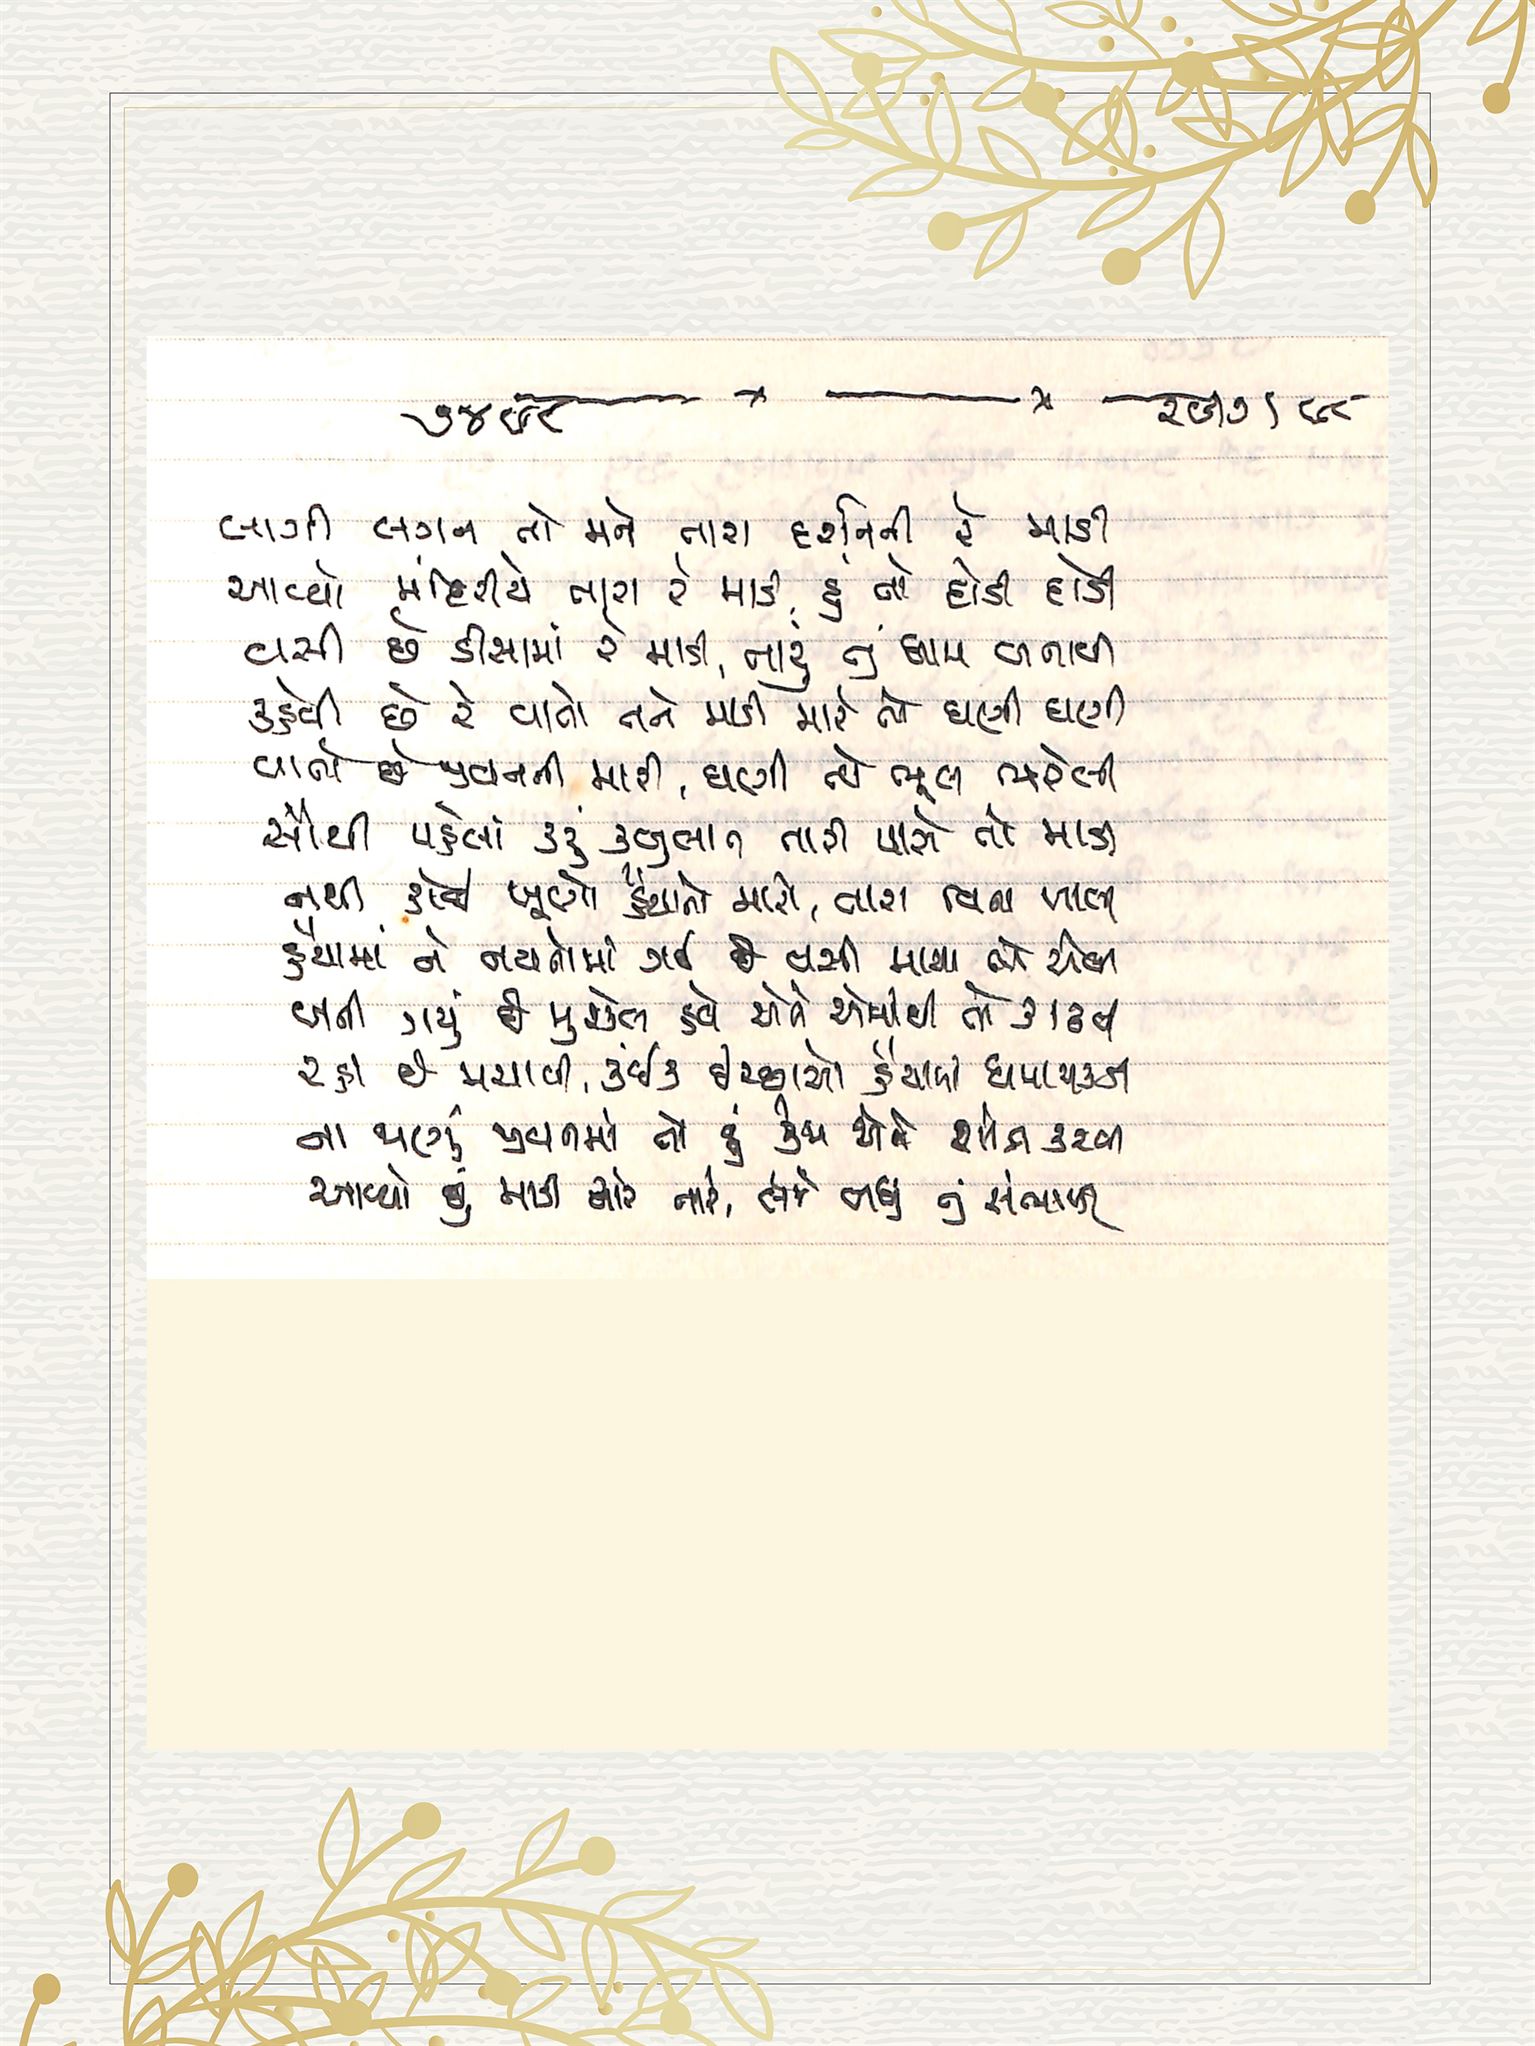 લાગી લગન તો મને તારા દર્શનની રે માડી
આવ્યો મંદિરીયે તારા રે માડી, હું તો દોડી દોડી
વસી છે ડીસામાં રે માડી, તારું તું ધામ બનાવી
કહેવી છે રે વાતો તને માડી મારે તો ઘણી ઘણી
વાતો છે જીવનની મારી, ઘણી તો ભૂલ ભરેલી
સૌથી પહેલાં કરું કબુલાત તારી પાસે તો માડી
નથી કોઈ ખૂણો હૈયાનો મારો, તારા વિના ખાલી
હૈયામાં ને નયનોમાં ગઈ છે વસી માયા તો એવી
બની ગયું છે મુશ્કેલ હવે એને એમાંથી તો કાઢવી
રહી છે મચાવી, કંઈક ઈચ્છાઓ હૈયામાં ધમાચકડી
ના જાણું જીવનમાં તો હું કેમ એને શાંત કરવી
આવ્યો છું માડી દ્વારે તારે, લેજે બધું તું સંભાળી